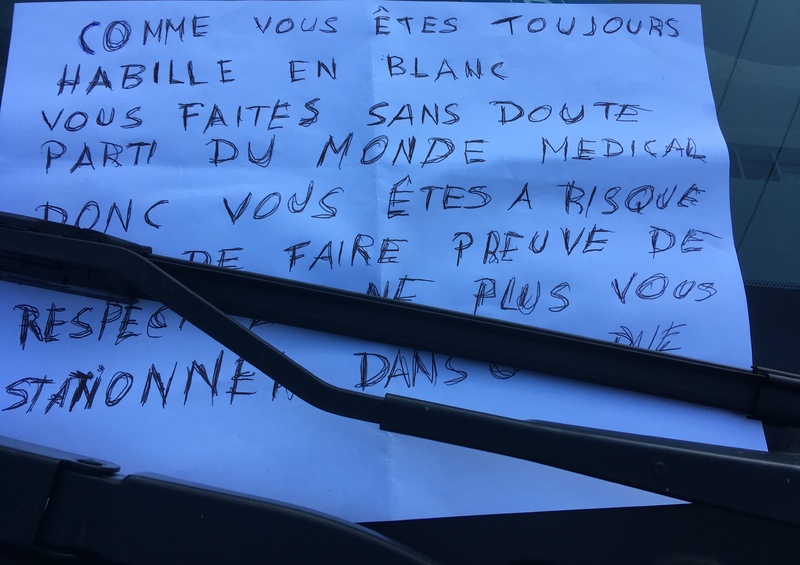 COMME VOUS ÊTES TOUJOURS
HABILLE EN BLANC
VOUS FAITES SANS DOUTE
PARTI DU MONDE MEDICAL
DONC VOUS ÊTES A RISQUE
DE FAIRE PREUVE DE
NE PLUS VOUS
STATIONNER DANS